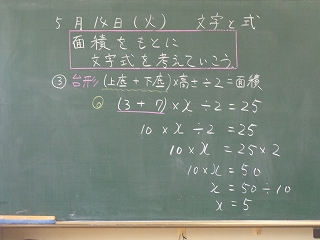 5月14日(火) 文字と式
面積をもとに
文字式を考えていこう。
③ 台形 (上底+下底)×高さ÷2=面積
(3+7)×x÷2=25
10×x÷2=25
10×x=25×2
10×x=50
x=50÷10
x=5